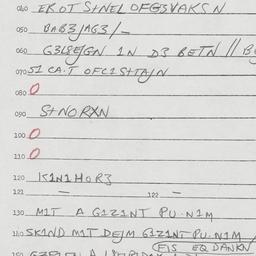 040 EKOT S+NEL OFG3VAKS N
050 BAB3/AG3/-
060 G3L8EJGN 1N D3 BETN //
070 51 CA.T OFC1S+TAJN
080 0
090 S+NORXN
100 0
110 0
120 K1N1HOR3
121 — 122 —
130 M1T A G1Z1NT PU.N1M
140 SK1ND M1T DEJM G1Z1NT PU.N1M
(F1S EQ DANKN
150